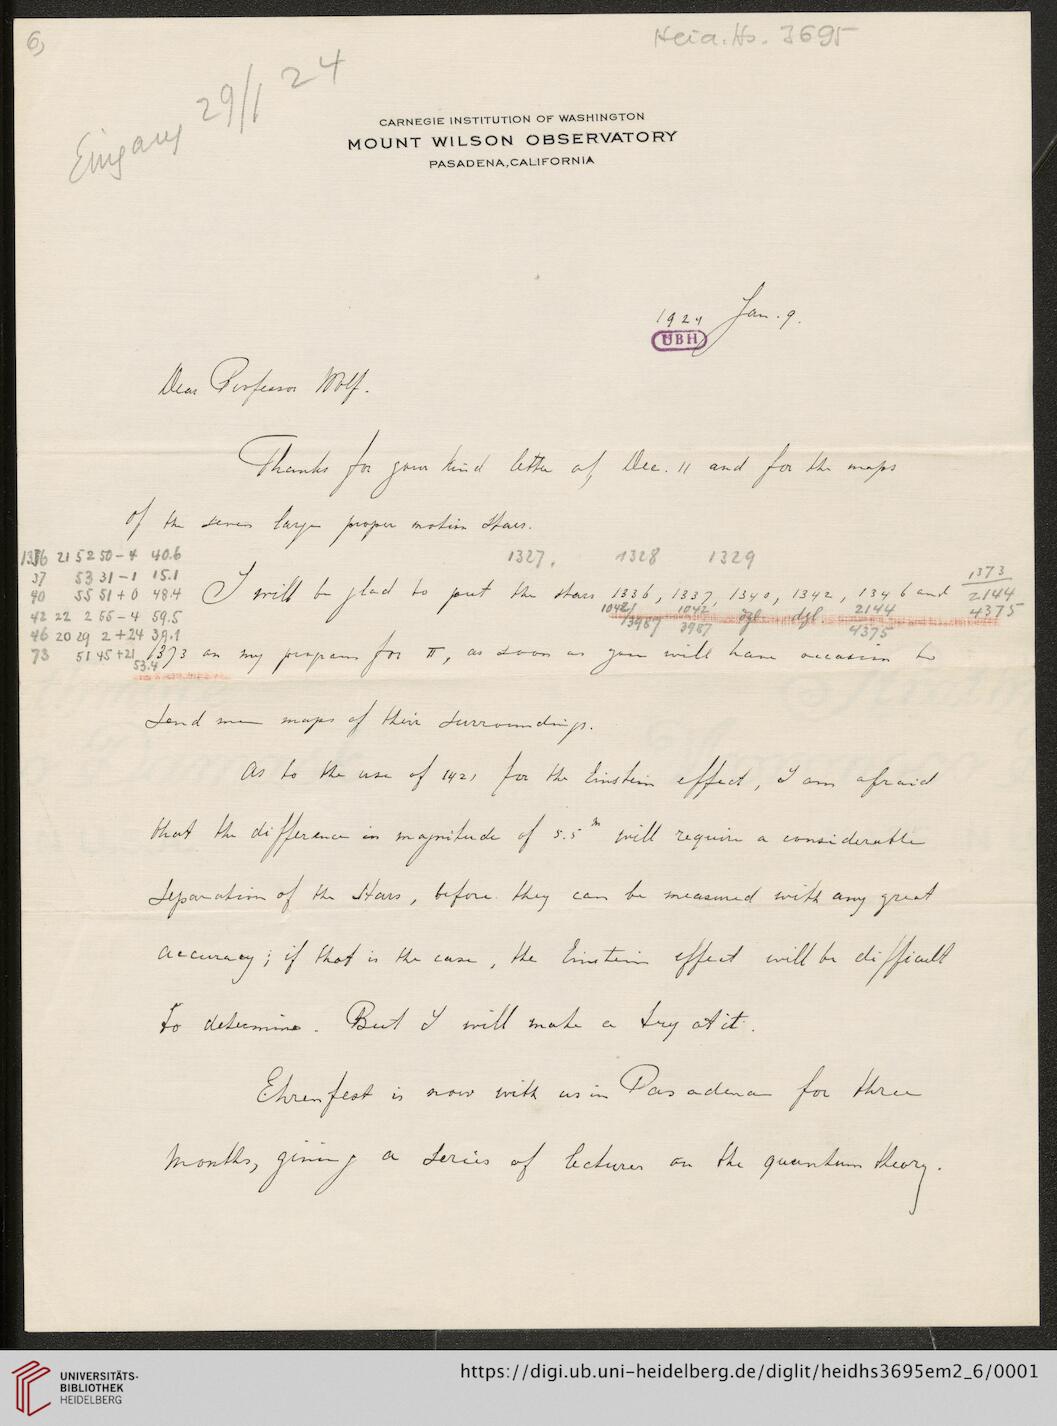 6)
Heid. Hs. 3695
Eingang 29/I 24
CARNEGIE INSTITUTION OF WASHINGTON
MOUNT WILSON OBSERVATORY
PASADENA, CALIFORNIA
1924 Jan. 9.
UBH
Dear Professor Wolf.
Thanks for your kind letter of Dec. 11 and for the maps
of the seven large proper motion stars.
1327, 1328 1329
1336 21 52 50 - 4 40.6
37 53 31 - 1 15.1
40 55 51 + 0 48.4
42 22 2 55 - 4 59.5
46 20 29 2 + 24 39.1
73 51 45 + 21 53.4
I will be glad to put the stars 1336, 1337, 1340, 1342, 1346 and
1373
2144
4375
1042 1042 dgl dgl 2144
3987 3987 4375
1373 on my program for π, as soon as you will have occasion to
send me maps of their surroundings.
As to the use of 1421 for the Einstein effect, I am afraid
that the difference in magnitude of 5.5 m will require a considerable
separation of the stars, before they can be measured with any great
accuracy; if that is the case, the Einstein effect will be difficult
to determine. But I will make a try at it.
Ehrenfest is now with us in Pasadena for three
months, giving a series of lectures on the quantum theory.
UNIVERSITÄTS-
BIBLIOTHEK
HEIDELBERG
https://digi.ub.uni-heidelberg.de/diglit/heidhs3695em2_6/0001